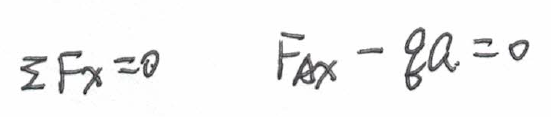 ΣFx=0 FAx - qa=0